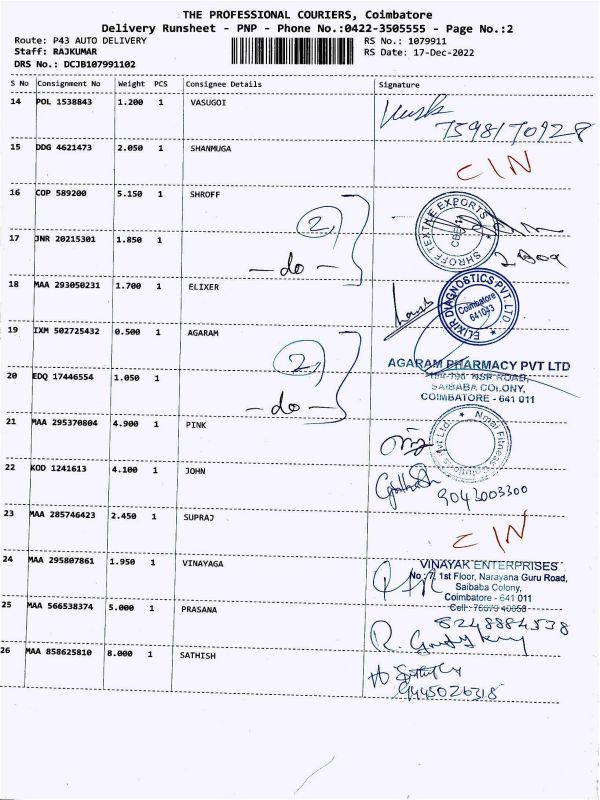 THE PROFESSIONAL COURIERS, Coimbatore
Delivery Runsheet - PNP - Phone No.:0422-3505555 - Page No.:2
Route: P43 AUTO DELIVERY RS No.: 1079911
Staff: RAJKUMAR RS Date: 17-Dec-2022
DRS No.: DCJB107991102
S No Consignment No Weight PCS Consignee Details Signature
14 POL 1538843 1.200 1 VASUGOI
7598170928
15 DDG 4621473 2.050 1 SHANMUGA
CIN
16 COP 589200 5.150 1 SHROFF
SHROFF TEXTILE EXPORTS
CBE
2
17 JNR 20215301 1.850 1
- do -
18 MAA 293050231 1.700 1 ELIXER
ELIXIR DIAGNOSTICS PVT. LTD
Coimbatore
641043
19 IXM 502725432 0.500 1 AGARAM
2
AGARAM PHARMACY PVT LTD
NSR ROAD,
SAIBABA COLONY,
COIMBATORE - 641 011
20 EDQ 17446554 1.050 1
- do -
21 MAA 295370804 4.900 1 PINK
Fitness Pvt Ltd.
22 KOD 1241613 4.100 1 JOHN
9043003300
23 MAA 285746423 2.450 1 SUPRAJ
CIN
24 MAA 295807861 1.950 1 VINAYAGA
VINAYAK ENTERPRISES
No : 7, 1st Floor, Narayana Guru Road,
Saibaba Colony,
Coimbatore - 641 011
Cell :
25 MAA 566538374 5.000 1 PRASANA
8248884538
26 MAA 858625810 8.000 1 SATHISH
9445026318